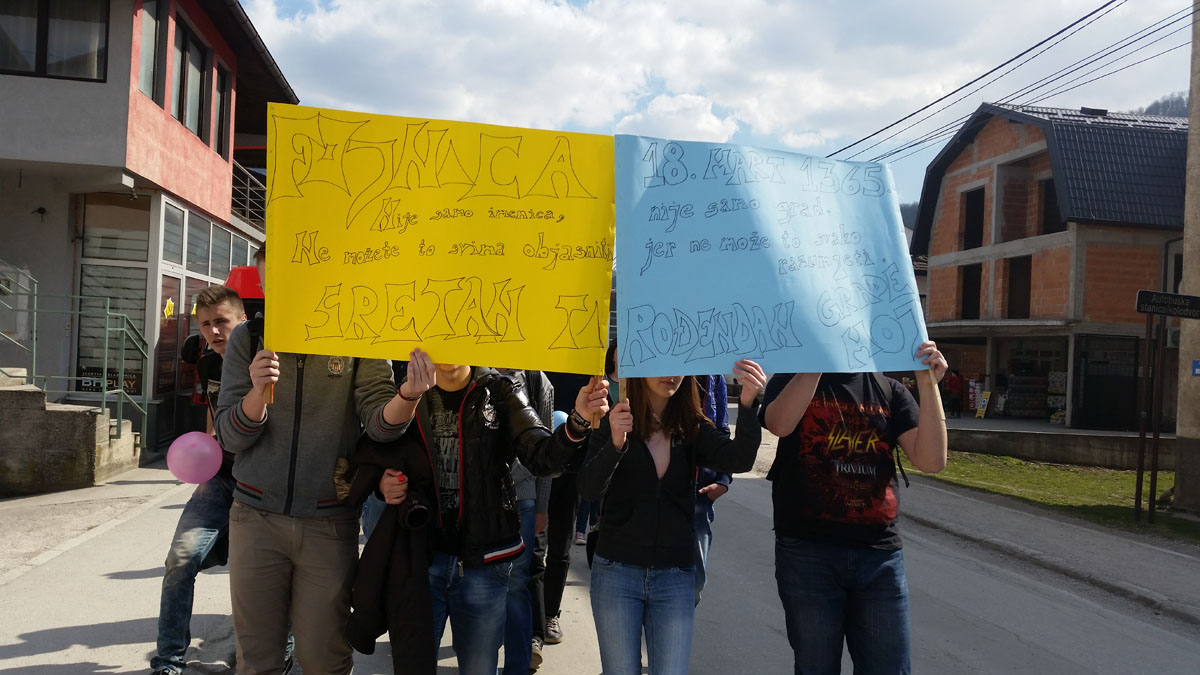 FOJNICA
Nije samo imenica,
Ne možete to svima objasniti
SRETAN TI
18. MART 1365.
nije samo grad.
jer ne može to svako
razumjeti.
ROĐENDAN GRADE
MOJ
SLAYER
TRIVIUM
BH PLAY
Autobuska
stanica/kolodvor